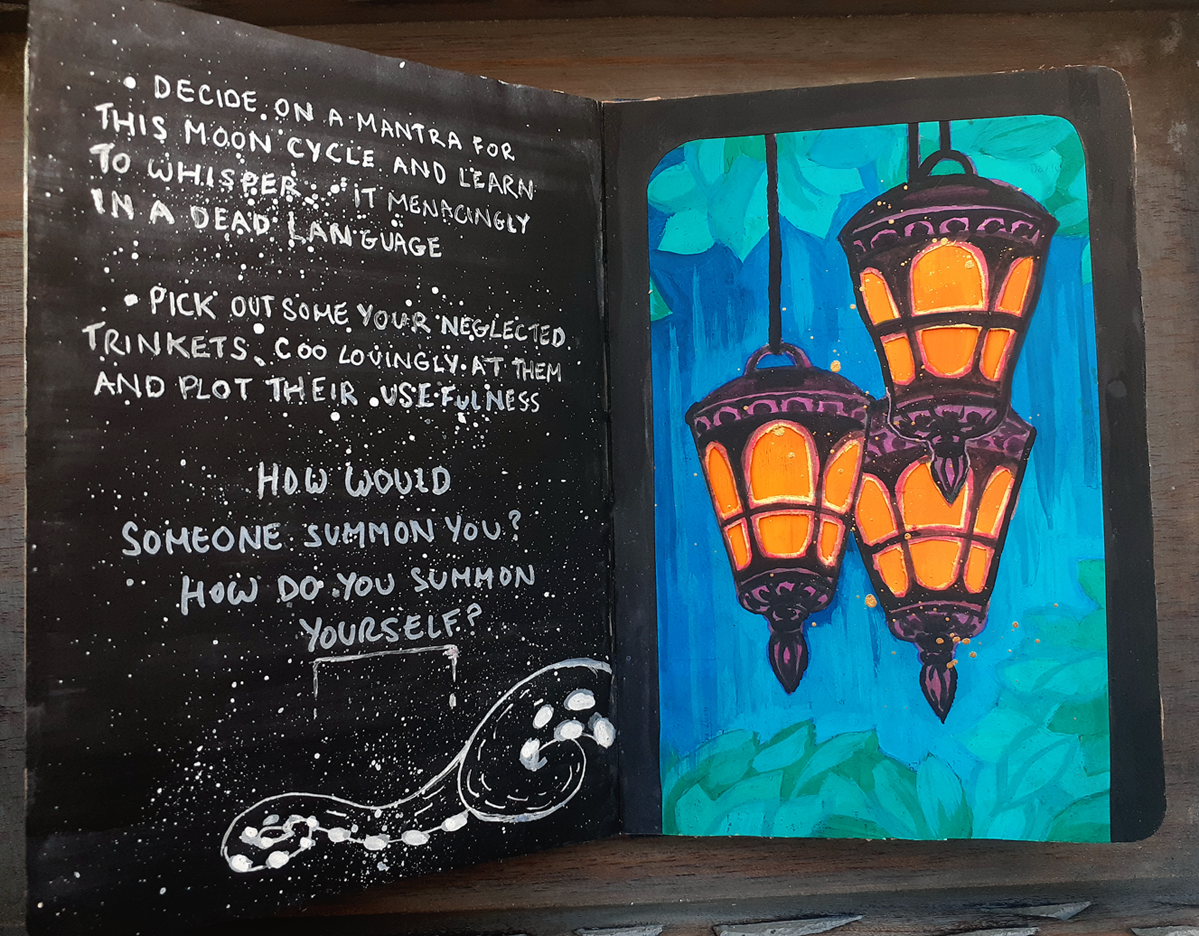 • DECIDE ON A MANTRA FOR
THIS MOON CYCLE AND LEARN
TO WHISPER IT MENACINGLY
IN A DEAD LANGUAGE
• PICK OUT SOME YOUR NEGLECTED
TRINKETS, COO LOVINGLY AT THEM
AND PLOT THEIR USEFULNESS
HOW WOULD
SOMEONE SUMMON YOU?
HOW DO YOU SUMMON
YOURSELF?